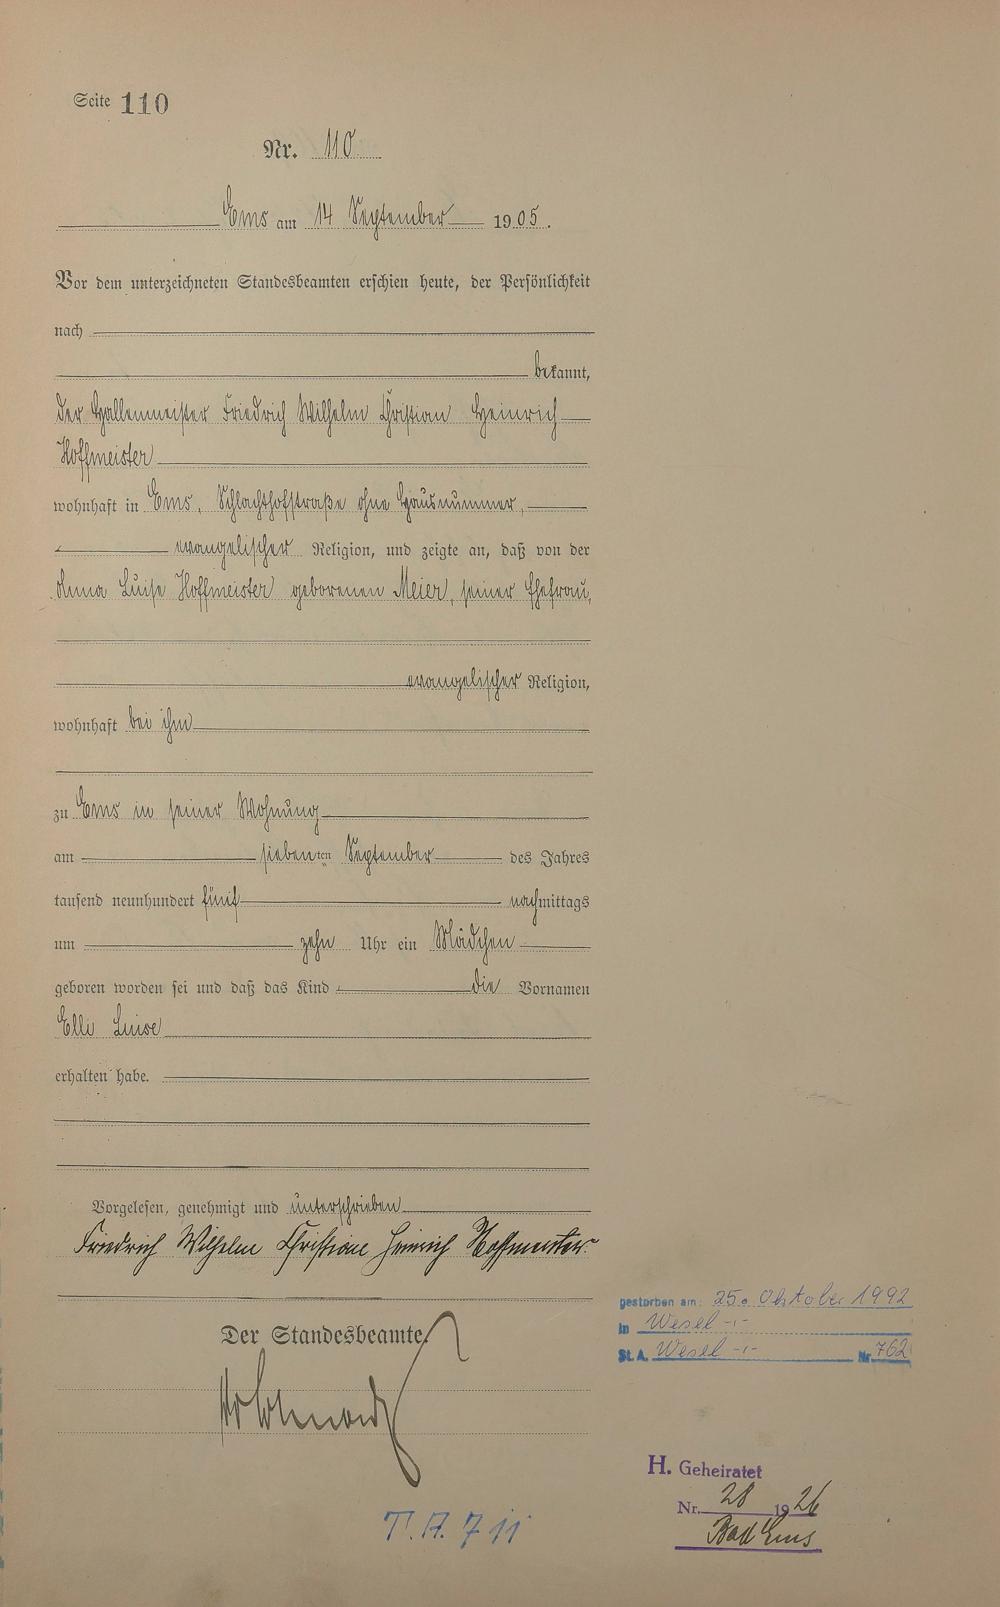 Seite 110
Nr. 110
Ems am 14 September 1905.
Vor dem unterzeichneten Standesbeamten erschien heute, der Persönlichkeit
nach
bekannt,
der Hallenmeister Friedrich Wilhelm Christian Heinrich
Hoffmeister
wohnhaft in Ems, Schlachthofstraße ohne Hausnummer,
evangelischer Religion, und zeigte an, daß von der
Anna Luise Hoffmeister geborenen Meier, seiner Ehefrau,
evangelischer Religion,
wohnhaft bei ihm
zu Ems in seiner Wohnung
am siebenten September des Jahres
tausend neunhundert fünf nachmittags
um zehn Uhr ein Mädchen
geboren worden sei und daß das Kind die Vornamen
Elli Luise
erhalten habe.
Vorgelesen, genehmigt und unterschrieben
Friedrich Wilhelm Christian Heinrich Hoffmeister
Der Standesbeamte.
gestorben am: 25. Oktober 1992
in Wesel -,-
St. A. Wesel -,- Nr. 762
H. Geheiratet
Nr. 28 1926
Bad Ems
T. A. 7 11